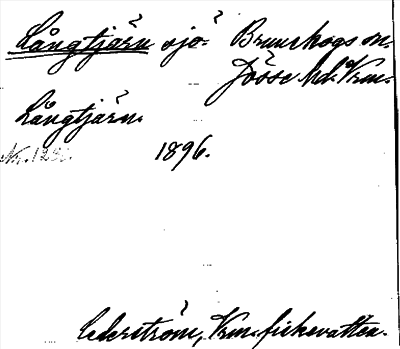 Långtjärn sjö- Brunskogs sn.
Jösse hd. Vrm.
Långtjärn.
Nr. 1896.
Cederström, Vrm. fiskevatten.